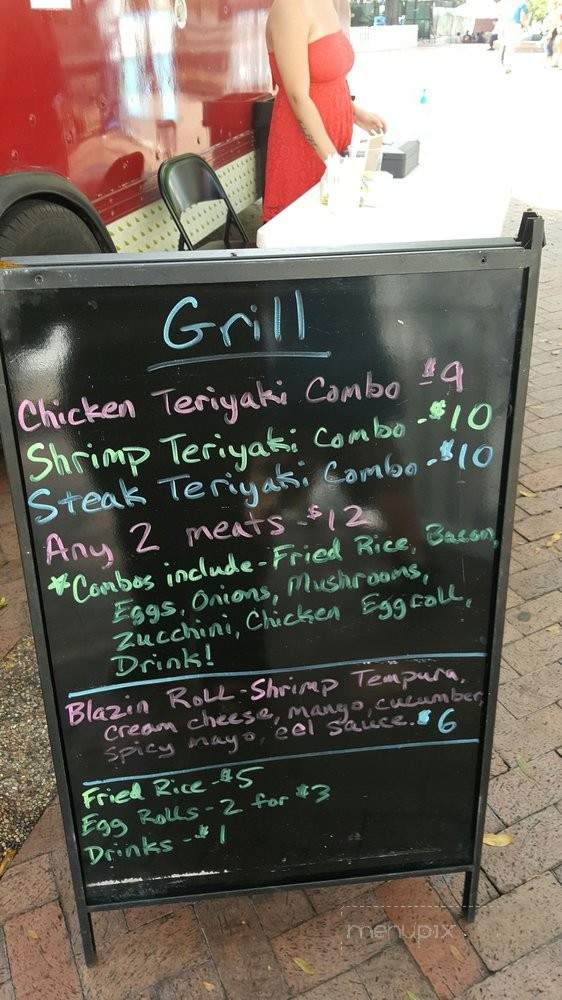 Grill
Chicken Teriyaki Combo $9
Shrimp Teriyaki Combo - $10
Steak Teriyaki Combo - $10
Any 2 meats - $12
*Combos include - Fried Rice, Bacon,
Eggs, Onions, Mushrooms,
Zucchini, Chicken Eggroll,
Drink!
Blazin Roll - Shrimp Tempura,
cream cheese, mango, cucumber,
spicy mayo, eel sauce. $6
Fried Rice - $5
Egg Rolls - 2 for $3
Drinks - $1
menupix